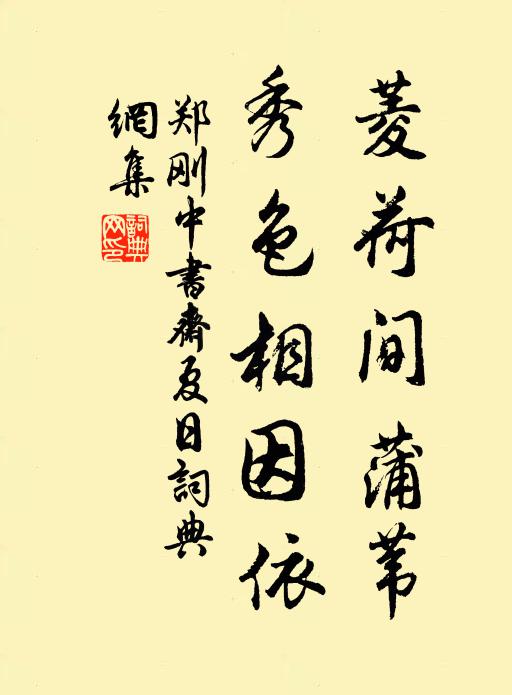 菱荷间蒲苇
秀色相因依
郑刚中书斋夏日詞典
網集
詞典
网印